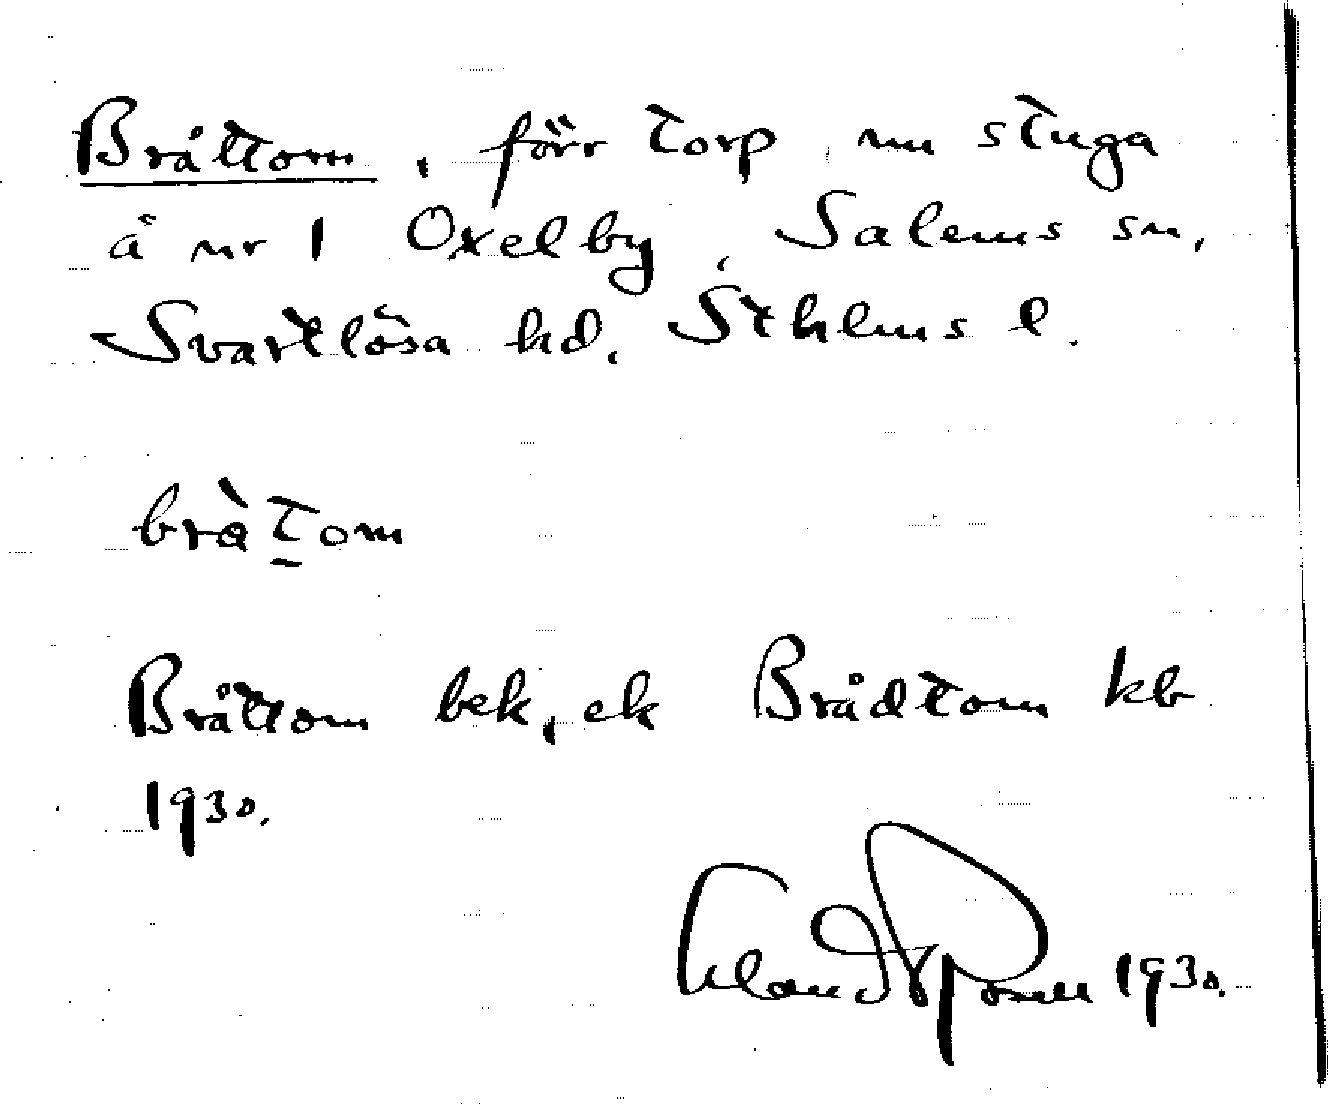 Bråttom, förr torp, nu stuga
å nr 1 Oxelby, Salems sn,
Svartlösa hd. Sthlms l.
bràtom
Bråttom bek, ek Brådtom kb
1930.
1930.